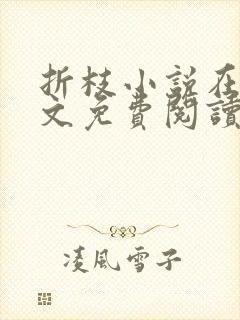 折枝小説在
文免費閱讀
凌風雪子